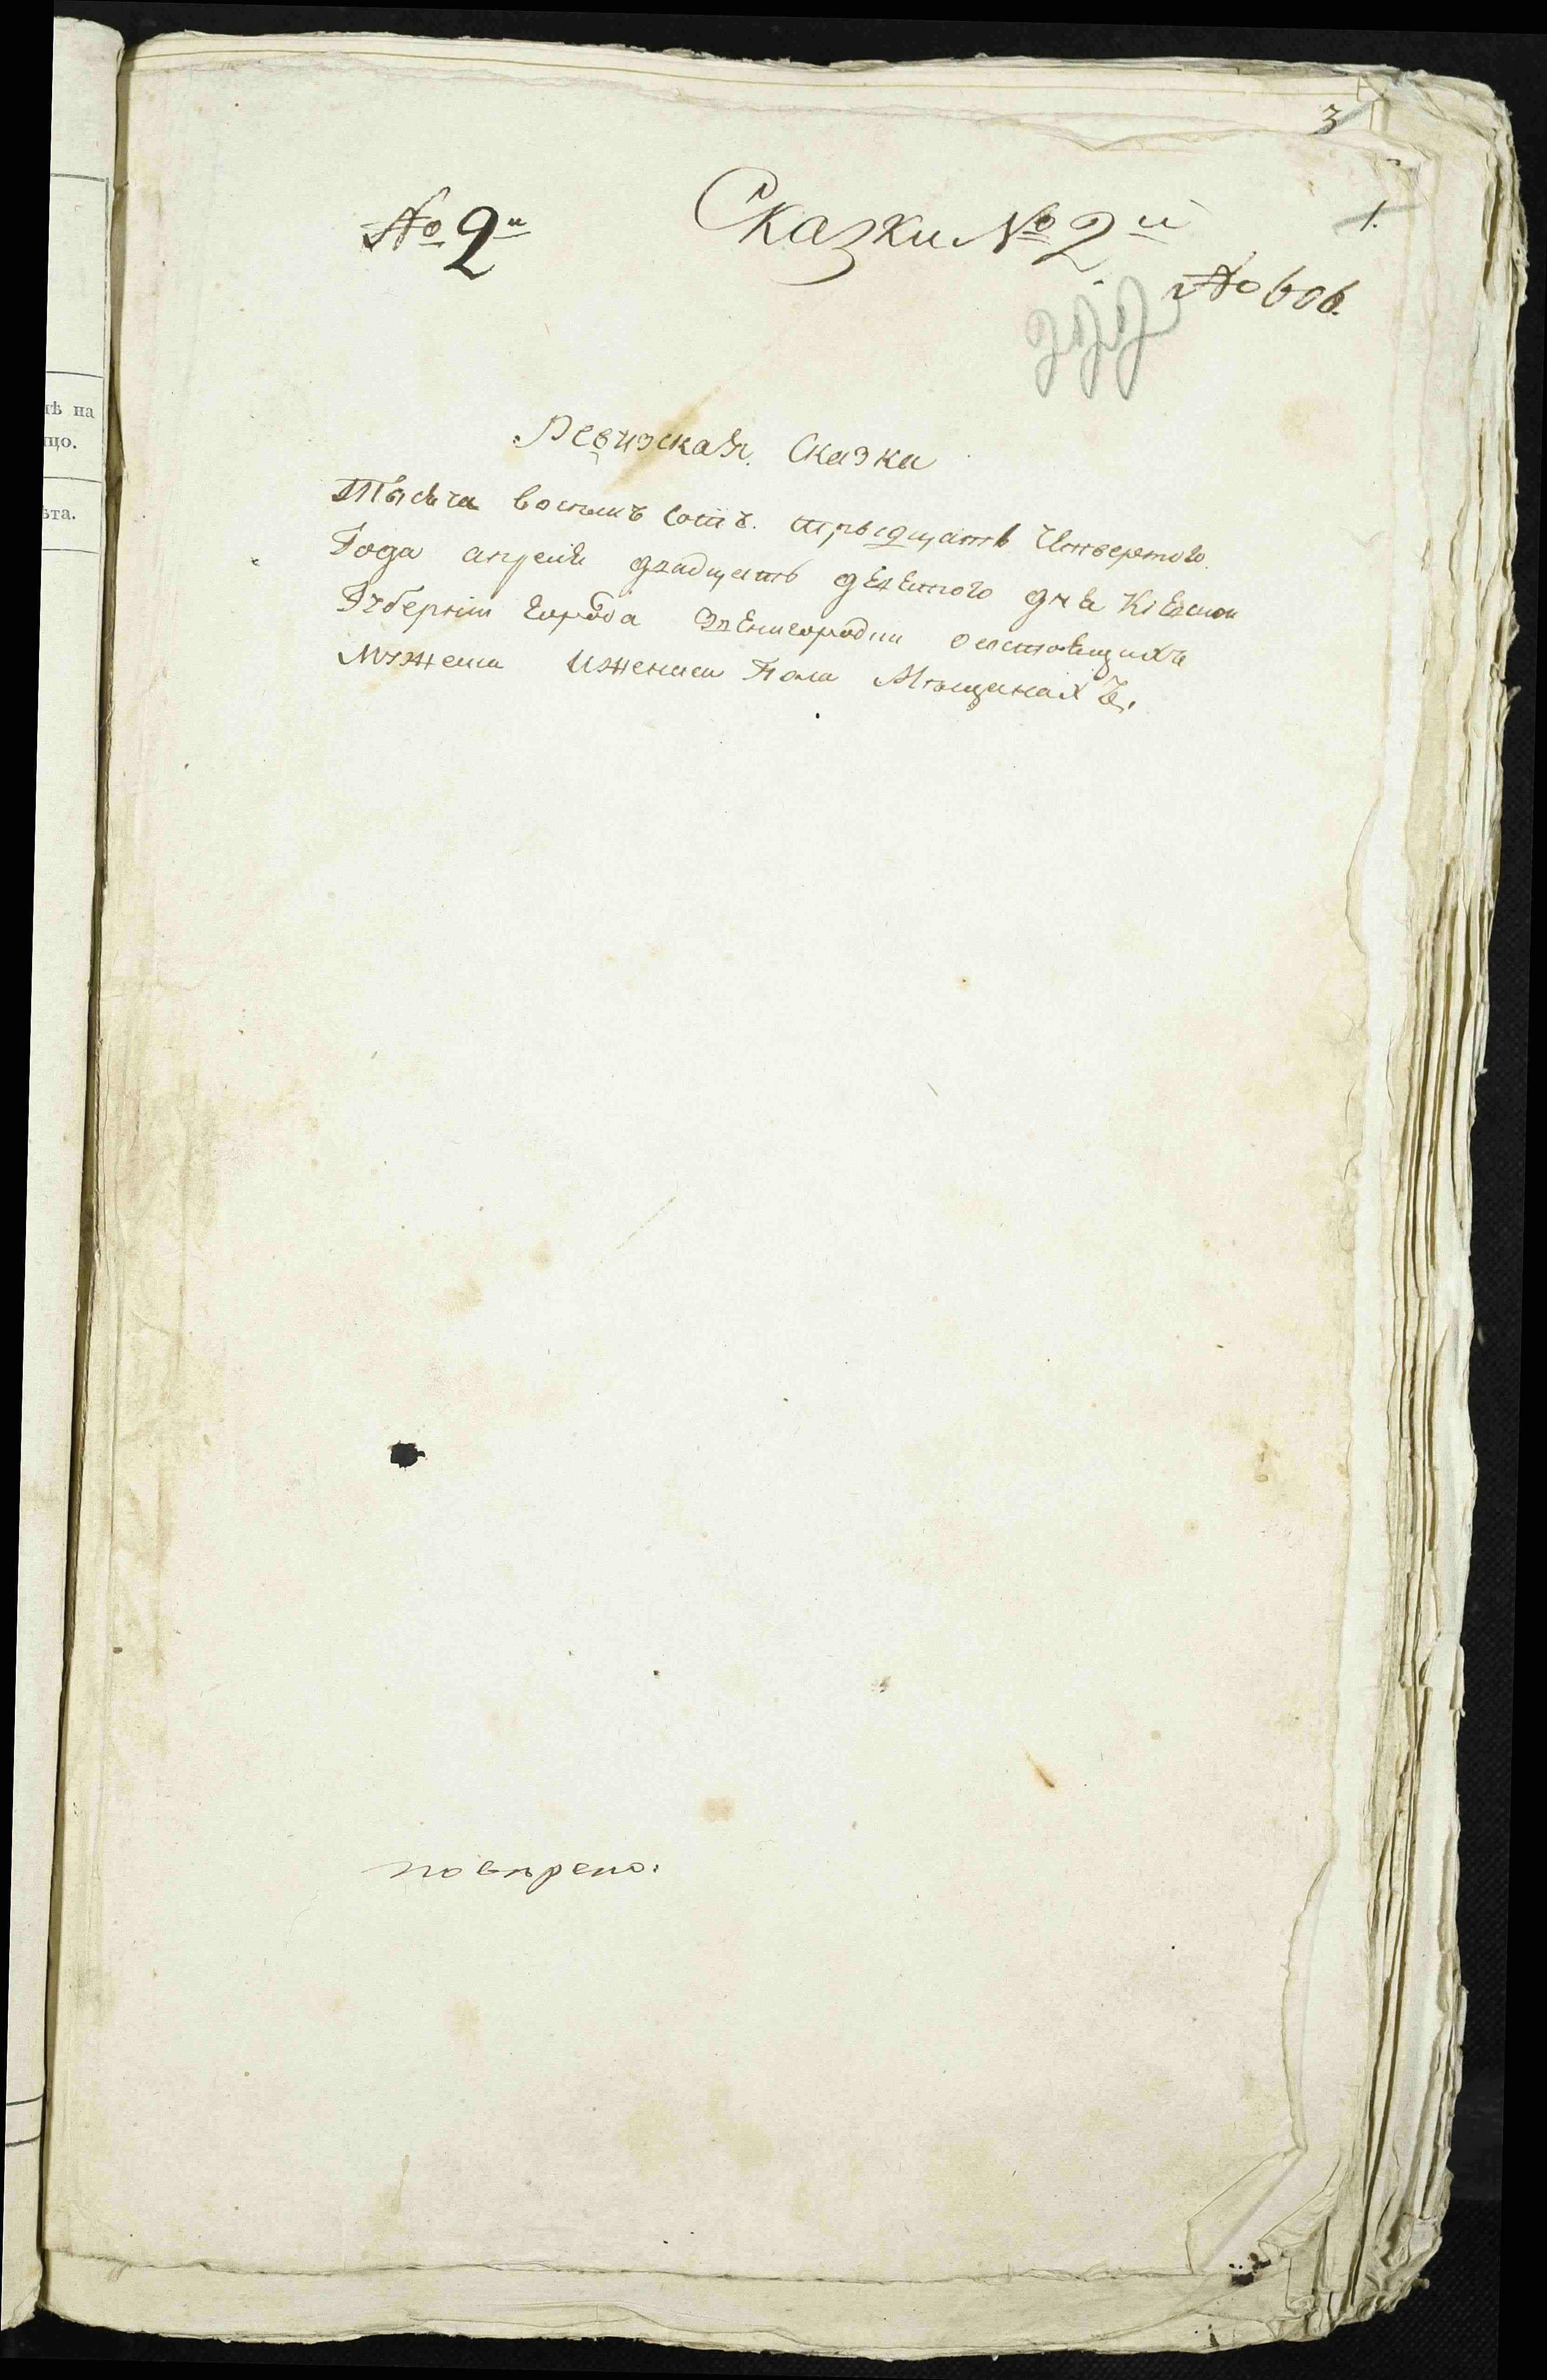 3
1.
№ 2й
Сказки № 2й
№ 606.
222
Ревизская Сказка
Тысяча восемь сотъ. трыдцать Четвертого
Года апреля двадцять девятого дня Киевской
Губернии города Звенигородки о состоящихъ
Мужеска Иженска Пола Мѣщанахъ,
повѣрено:
ѣ на
що.
ѣта.